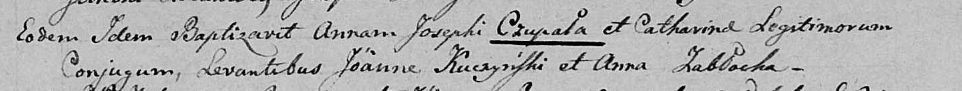 Eodem Idem Baptizavit Annam Josephi Czupała et Catharinæ Legitimorum
Conjugum, Levantibus Joanne Kuczyński et Anna Zabłocka –